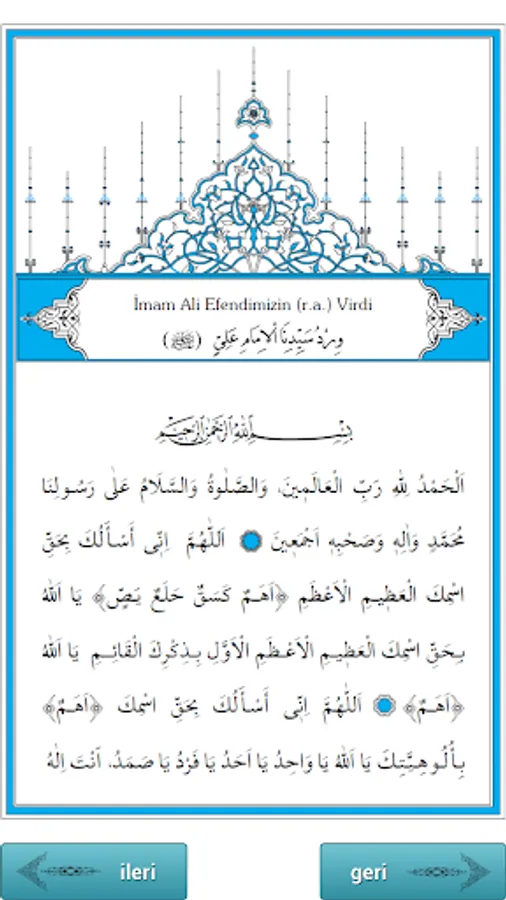 İmam Ali Efendimizin (r.a.) Virdi
وِرْدُ سَيِّدِنَا اْلاِمَامِ عَلِيٍّ
بِسْمِ اللّٰهِ الرَّحْمٰنِ الرَّحِيمِ
اَلْحَمْدُ لِلّٰهِ رَبِّ الْعَالَمِينَ، وَالصَّلٰوةُ وَالسَّلَامُ عَلٰى رَسُولِنَا
مُحَمَّدٍ وَاٰلِهٖ وَصَحْبِهٖ اَجْمَعِينَ اَللّٰهُمَّ اِنّٖى أَسْأَلُكَ بِحَقِّ
اسْمِكَ الْعَظِيمِ الْاَعْظَمِ ﴿اَهَمٌ كَسَقٌ حَلَعٌ يَصٌ﴾ يَا اَللّٰهُ
بِحَقِّ اسْمِكَ الْعَظِيمِ الْاَعْظَمِ الْاَوَّلِ بِذِكْرِكَ الْقَائِمِ يَا اَللّٰهُ
﴿اَهَمٌ﴾ اَللّٰهُمَّ اِنّٖى أَسْأَلُكَ بِحَقِّ اسْمِكَ ﴿اَهَمٌ﴾
بِأُلُوهِيَّتِكَ يَا اَللّٰهُ يَا وَاحِدُ يَا اَحَدُ يَا فَرْدُ يَا صَمَدُ، اَنْتَ اِلٰهُ
ileri
geri